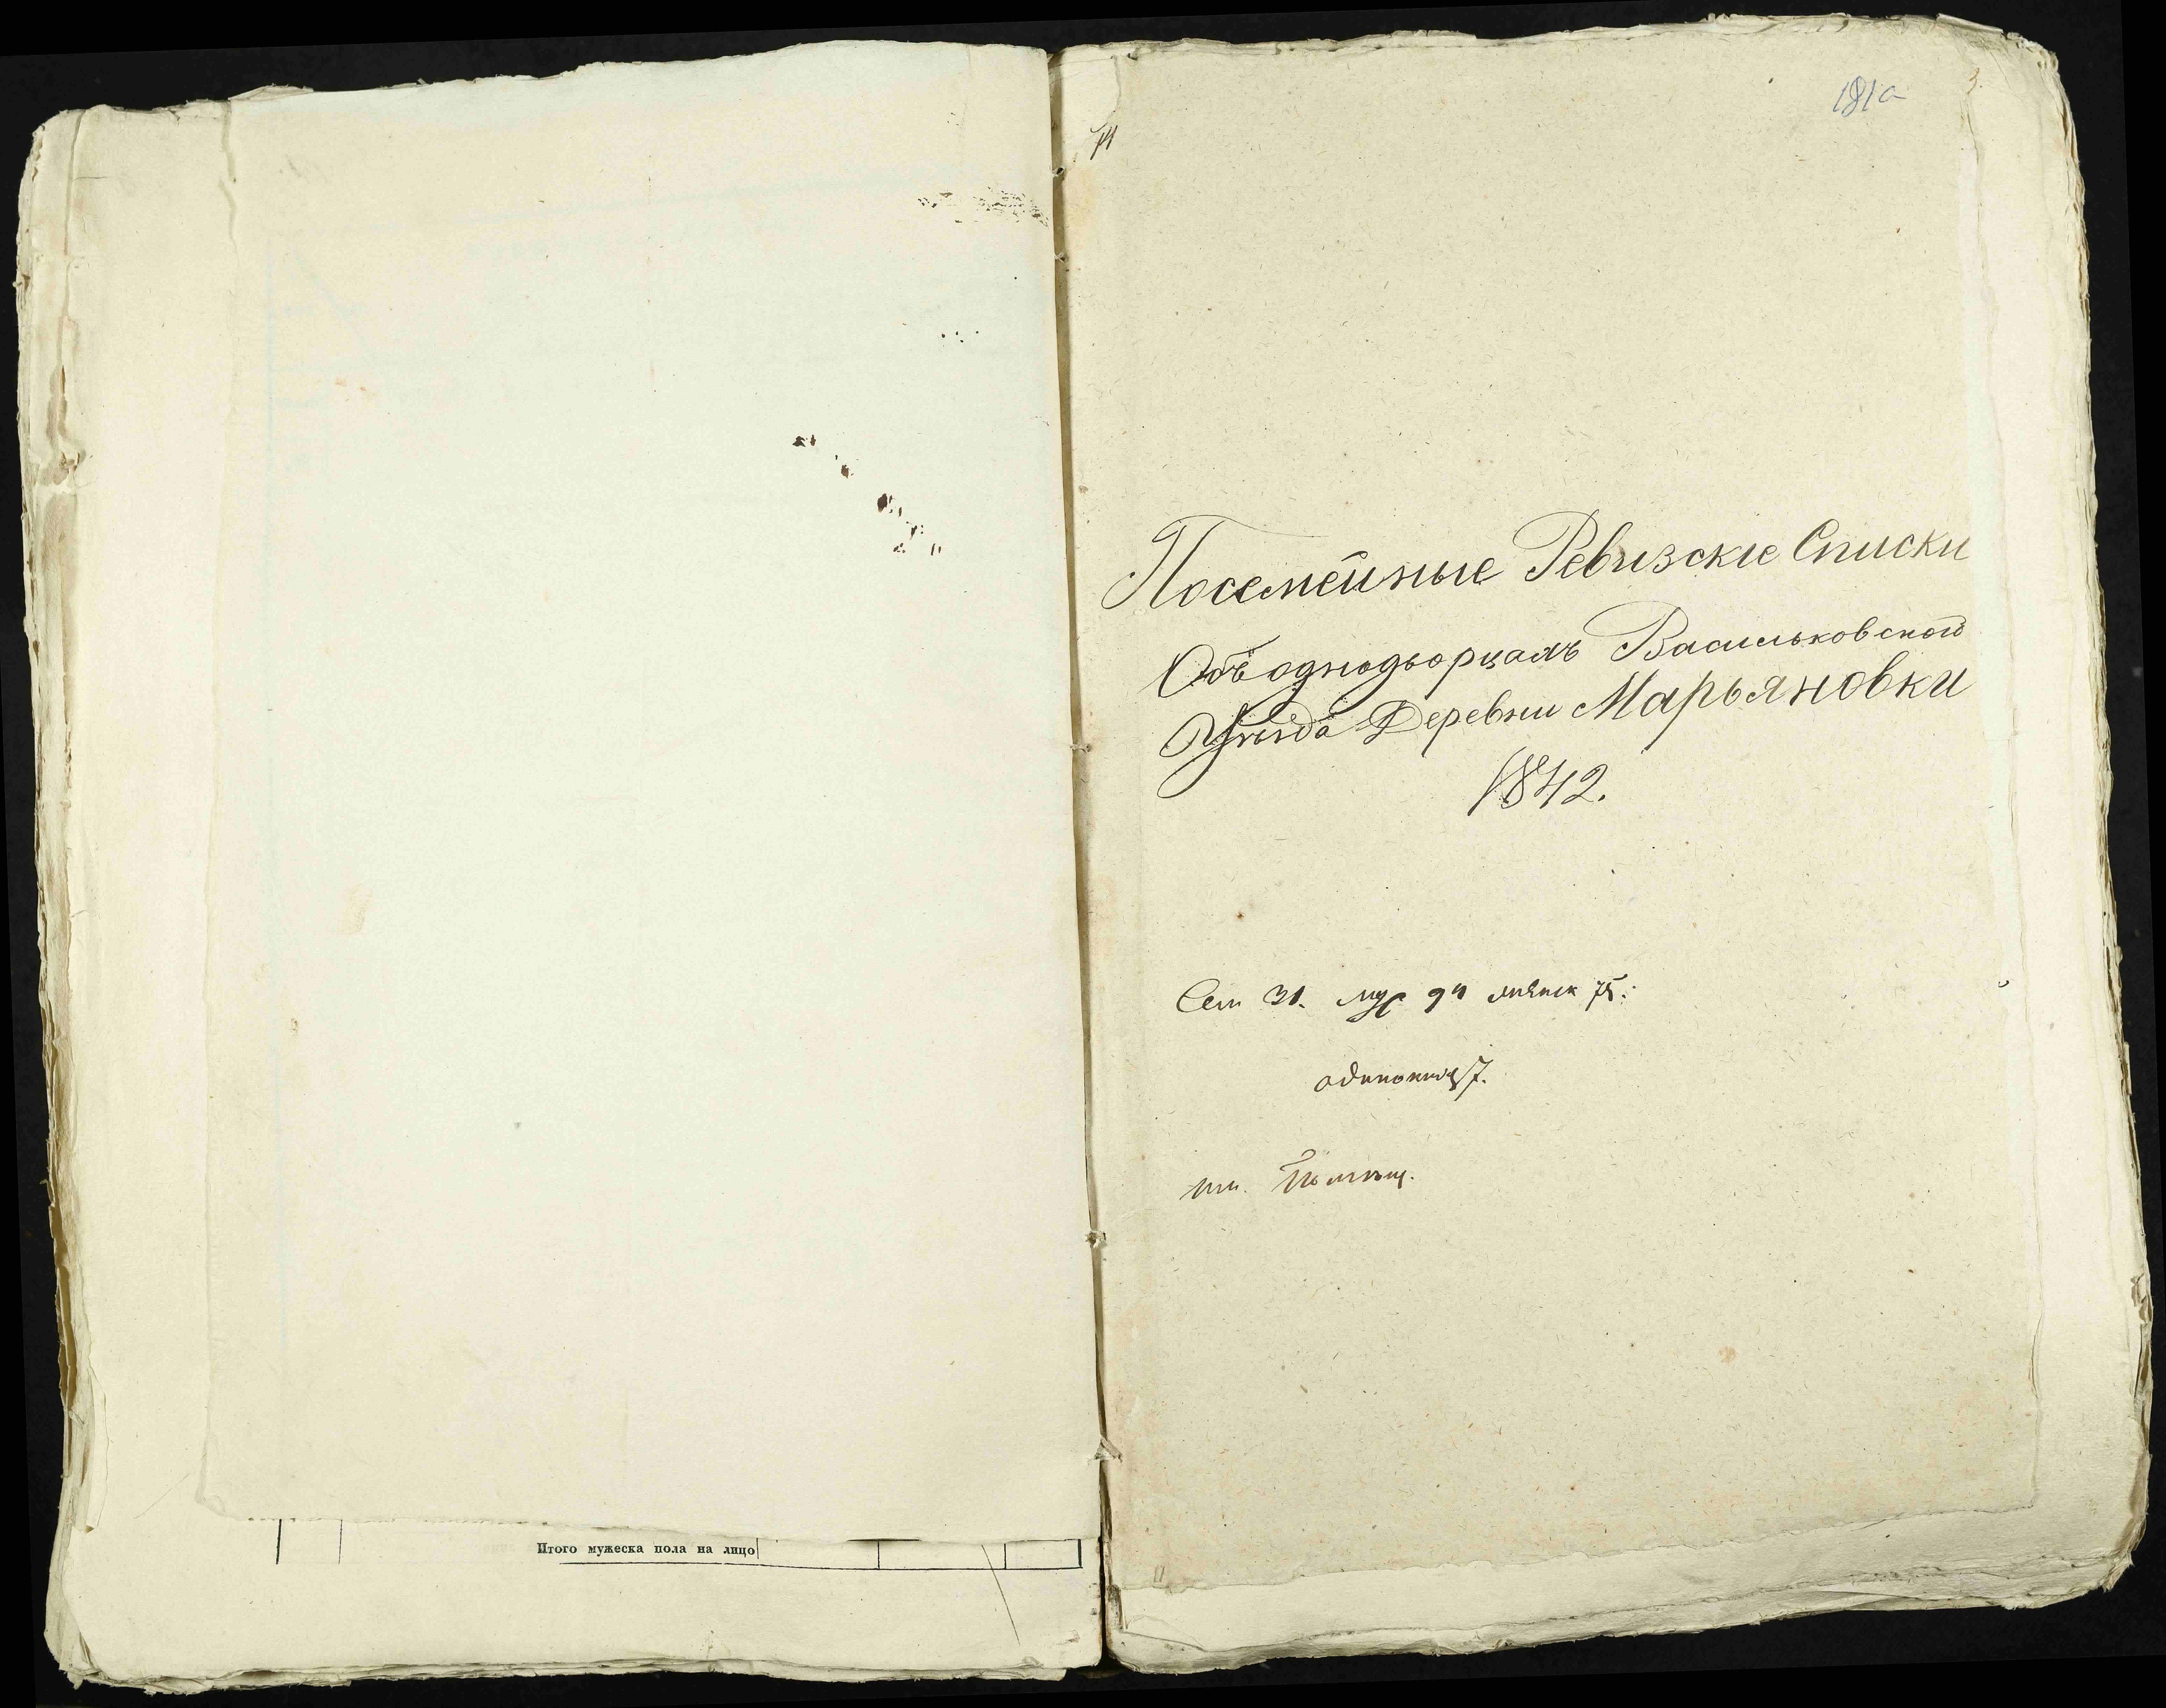 Итого мужеска пола на лицо
181а
Посемейные Ревизскіе Списки
Объ однодворцахъ Васильковскаго
Уѣзда Деревни Марьяновки
1842.
Сем 31. муж 94 женск 75.
одиноких 7.